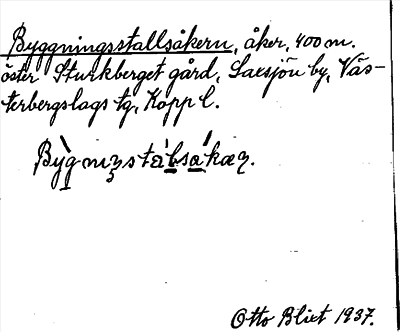 Byggningsstallsåkern, åker, 400 m.
öster Sturkberget gård, Saxsjön by, Väs-
terbergslags tg, Kopp l.
Otto Blixt 1937.